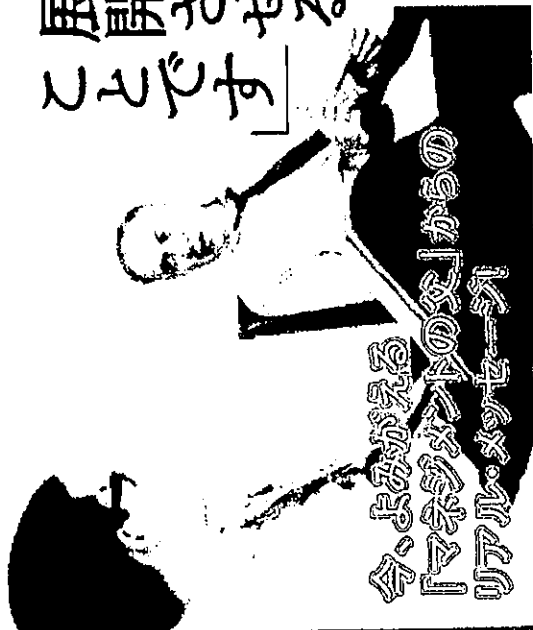 展開させる
ことです」
今、よみがえる
「マネジメントの父」からの
リアル・メッセージ!